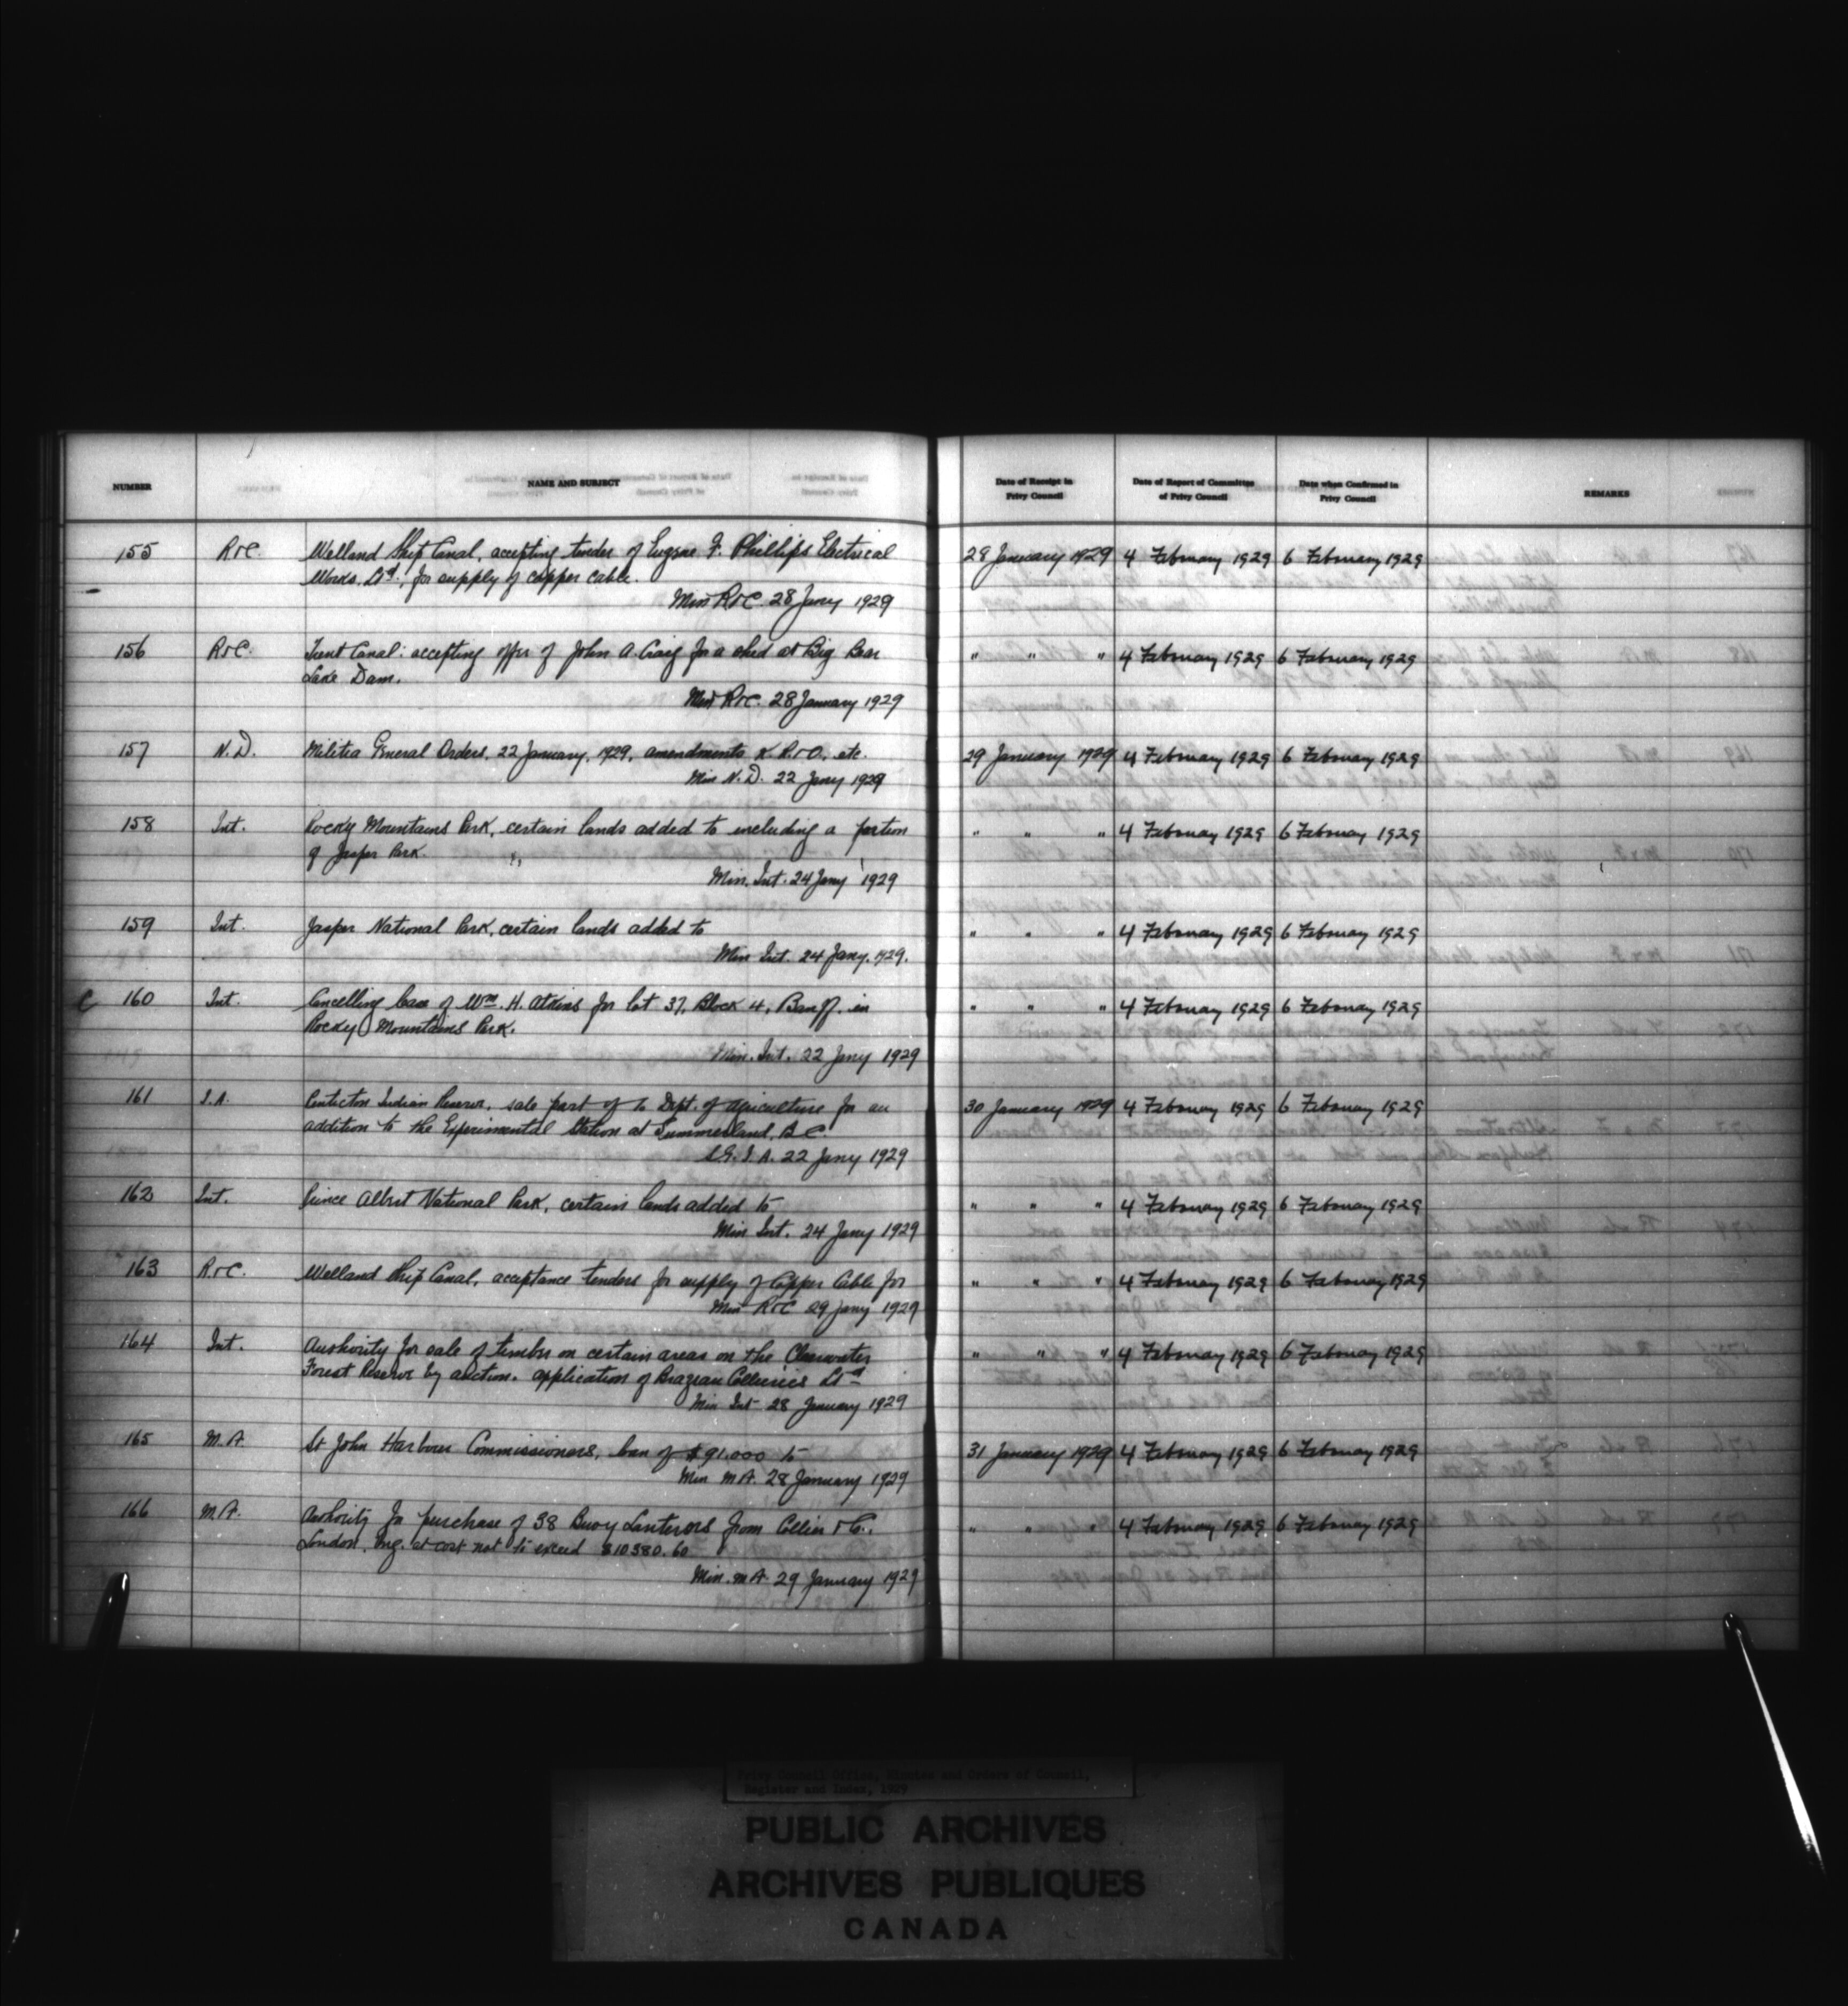 NUMBER
NAME AND SUBJECT
Date of Receipt in Privy Council
Date of Report of Committee of Privy Council
Date when Confirmed in Privy Council
REMARKS
155 R&C. Welland Ship Canal, accepting tender of Eugene F. Phillips Electrical 28 January 1929 4 February 1929 6 February 1929
Works, Ltd., for supply of copper cable.
Min R&C. 28 Jany 1929
156 R&C. Trent Canal: accepting offer of John A. Craig for a shed at Big Bear " " " 4 February 1929 6 February 1929
Lake Dam.
Min R&C. 28 January 1929
157 N.D. Militia General Orders, 22 January, 1929, amendments K.R.&O. etc. 29 January 1929 4 February 1929 6 February 1929
Min N.D. 22 Jany 1929
158 Int. Rocky Mountains Park, certain lands added to including a portion " " " 4 February 1929 6 February 1929
of Jasper Park.
Min. Int. 24 Jany 1929
159 Int. Jasper National Park, certain lands added to " " " 4 February 1929 6 February 1929
Min Int. 24 Jany. 1929.
C 160 Int. Cancelling lease of Wm. H. Atkins for lot 37, Block 4, Banff, in " " " 4 February 1929 6 February 1929
Rocky Mountains Park.
Min. Int. 22 Jany 1929
161 I.A. Penticton Indian Reserve, sale part of to Dept. of Agriculture for an 30 January 1929 4 February 1929 6 February 1929
addition to the Experimental Station at Summerland, B.C.
S.G.I.A. 22 Jany 1929
162 Int. Prince Albert National Park, certain lands added to " " " 4 February 1929 6 February 1929
Min Int. 24 Jany 1929
163 R&C. Welland Ship Canal, acceptance tenders for supply of Copper Cable for " " " 4 February 1929 6 February 1929
Min R&C 29 Jany 1929
164 Int. Authority for sale of timber on certain areas on the Clearwater " " " 4 February 1929 6 February 1929
Forest Reserve by auction. application of Brazeau Collieries Ltd
Min Int 28 January 1929
165 M.A. St John Harbour Commissioners, loan of $91.000 to 31 January 1929 4 February 1929 6 February 1929
Min M.A. 28 January 1929
166 M.A. Authority for purchase of 38 Buoy Lanterns from Collier & Co., " " " 4 February 1929 6 February 1929
London, Eng. at cost not to exceed $10380.60
Min. M.A. 29 January 1929
Privy Council Office, Minutes and Orders of Council,
Register and Index, 1929
PUBLIC ARCHIVES
ARCHIVES PUBLIQUES
CANADA